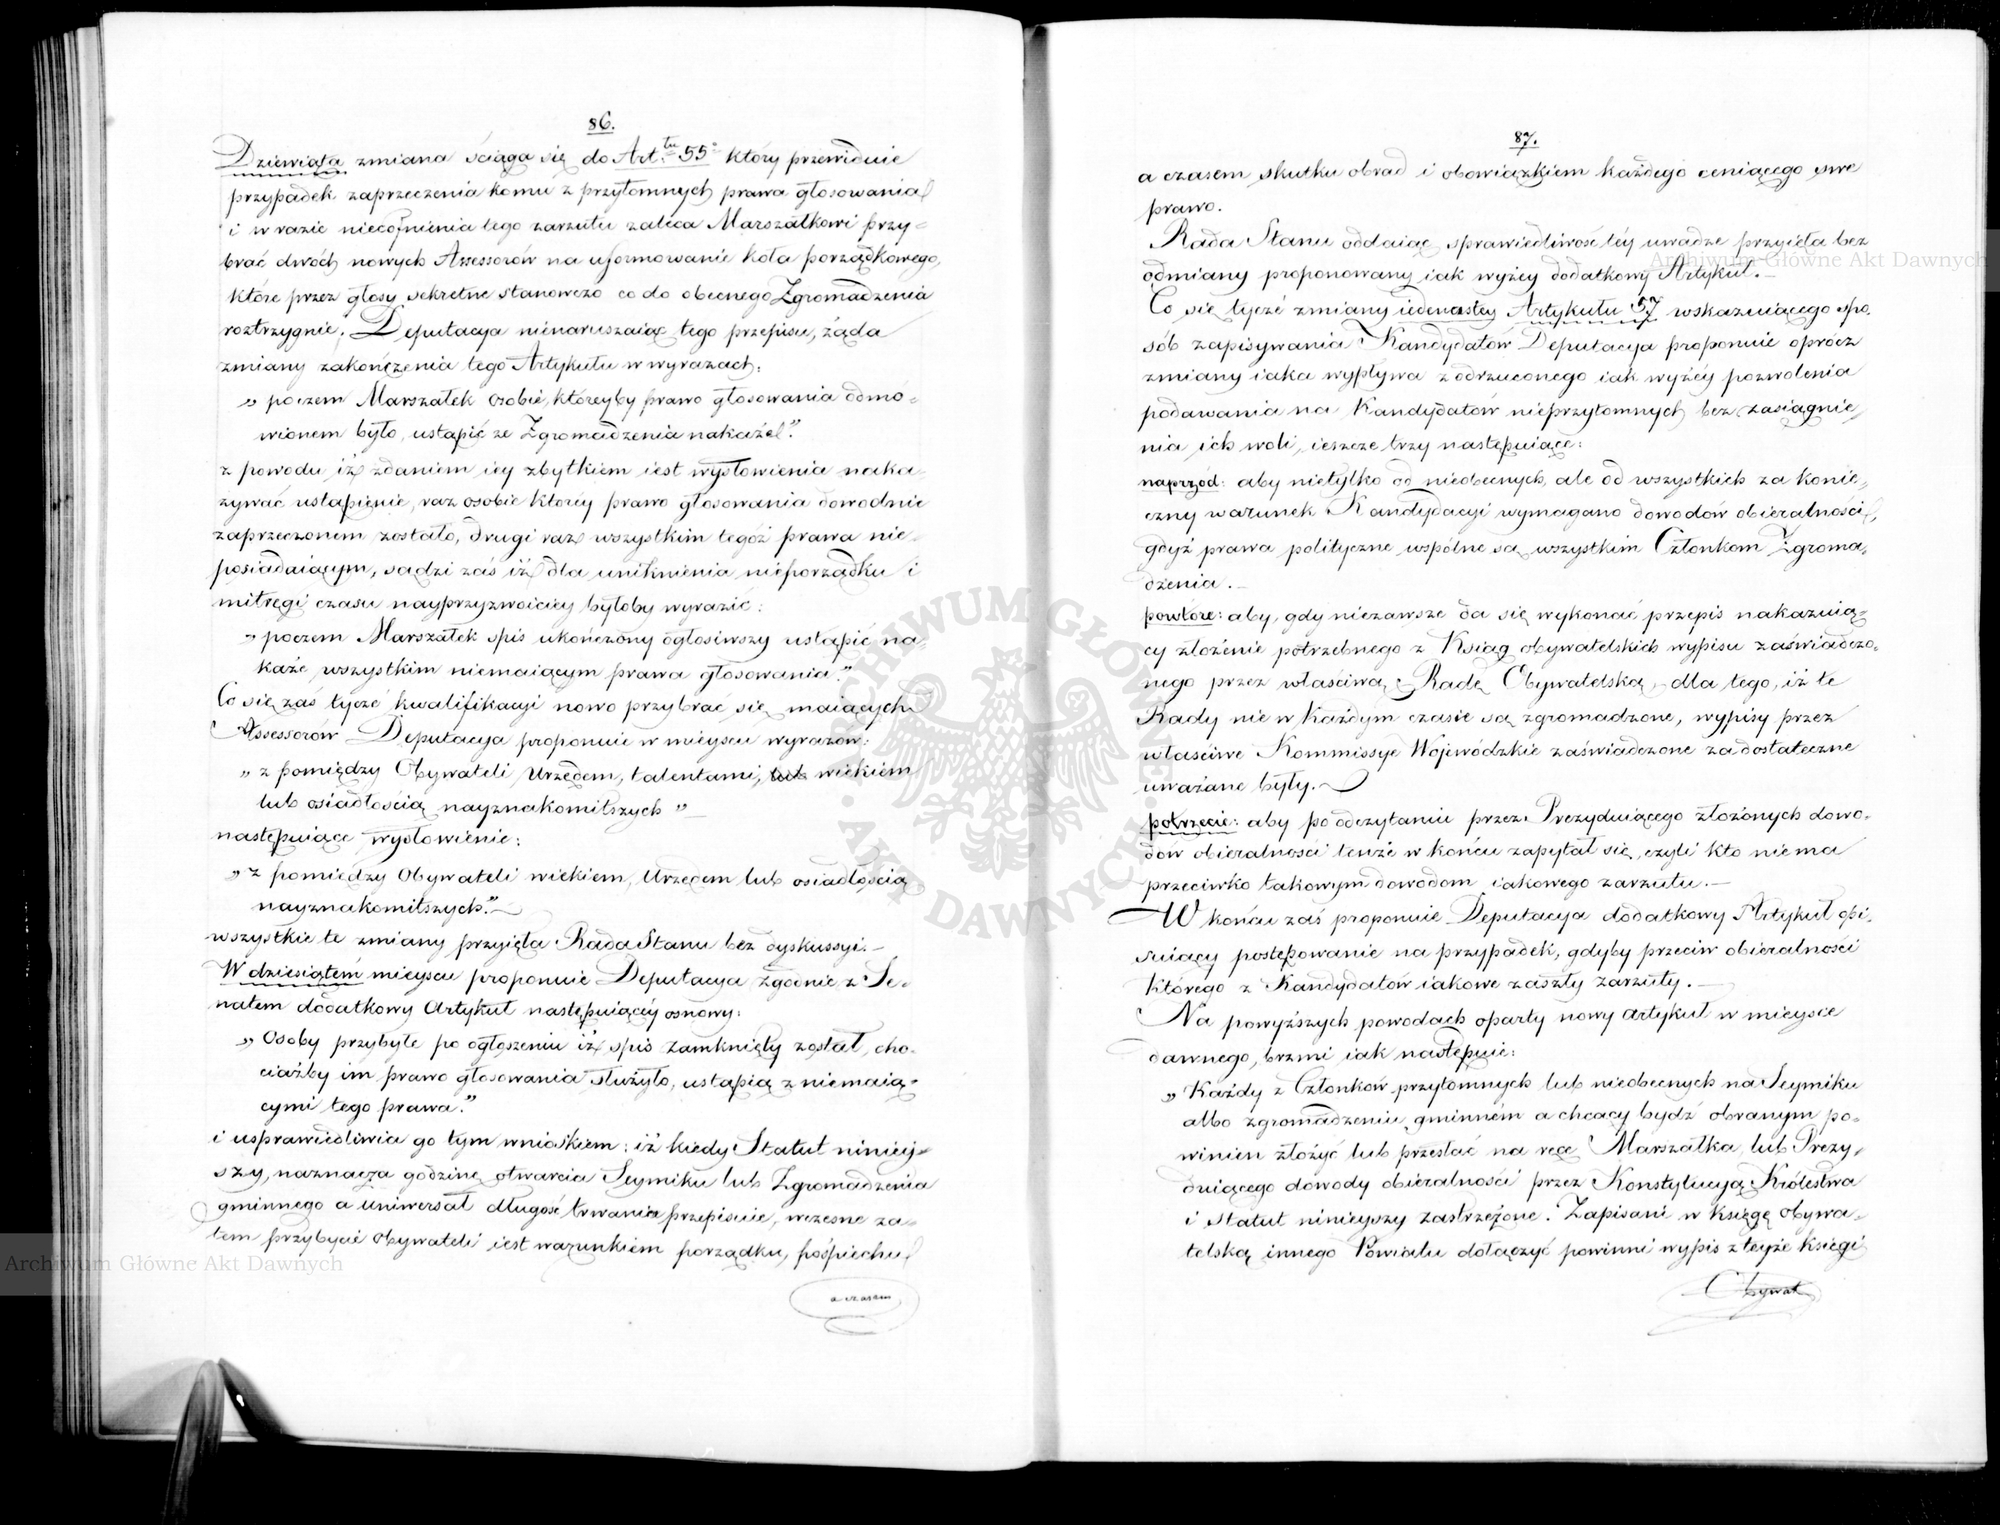 86.
Dziewiąta zmiana ściąga się do Art.tu 55° który przewiduie
przypadek zaprzeczenia komu z przytomnych prawa głosowania
i w razie niecofnienia tego zarzutu zaleca Marszałkowi przy-
brać dwóch nowych Assessorów na uformowanie koła porządkowego,
które przez głosy sekretne stanowczo co do obecnego Zgromadzenia
roztrzygnie. Deputacya nienaruszaiąc tego przepisu, żąda
zmiany zakończenia tego Artykułu w wyrazach:
„ poczem Marszałek osobie, któreyby prawo głosowania odmó-
wionem było, ustąpić ze Zgromadzenia nakaże".
z powodu iż zdaniem iey zbytkiem iest wysłowienia naka-
zywać ustąpienie, raz osobie którey prawo głosowania dowodnie
zaprzeczonem zostało, drugi raz wszystkim tegóż prawa nie-
posiadaiącym, sądzi zaś iż dla uniknienia nieporządku i
mitręgi czasu nayprzyzwoiciey byłoby wyrazić:
„ poczem Marszałek spis ukończony ogłosiwszy ustąpić na-
każe wszystkim niemaiącym prawa głosowania."
Co się zaś tycze kwalifikacyi nowo przybrac się maiących
Assessorów Deputacya proponuie w mieyscu wyrazów:
„ z pomiędzy Obywateli Urzędem, talentami, lub wiekiem
lub osiadłością nayznakomitszych "
następuiące wysłowienie:
„ z pomiędzy Obywateli wiekiem, Urzędem lub osiadłością
nayznakomitszych."
wszystkie te zmiany przyięła Rada Stanu bez dyskussyi.
W dziesiątem mieyscu proponuie Deputacya zgodnie z Se-
natem dodatkowy Artykuł następuiącéy osnowy:
„ Osoby przybyłe po ogłoszeniu iż spis zamknięty został, cho-
ciażby im prawo głosowania służyło, ustąpią z niemaią-
cymi tego prawa."
i usprawiedliwia go tym wnioskiem: iż kiedy Statut niniey-
szy, naznacza godzinę otwarcia Seymiku lub Zgromadzenia
gminnego a uniwersał długość trwania przepisuie, wczesne za-
tem przybycie Obywateli iest warunkiem porządku, pośpiechu
a czasem
87.
a czasem skutku obrad i obowiązkiem każdego ceniącego swe
prawo.
Rada Stanu oddaiąc sprawiedliwość téy uwadze przyięła bez
odmiany proponowany iak wyżey dodatkowy Artykuł.
Co się tycze zmiany iedenastey Artykułu 57 wskazuiącego spo-
sób zapisywania Kandydatów Deputacya proponuie oprócz
zmiany iaka wypływa z odrzuconego iak wyżéy pozwolenia
podawania na Kandydatów nieprzytomnych bez zasiągnie-
nia ich woli, ieszcze trzy następuiące:
naprzód: aby nietylko od nieobecnych, ale od wszystkich za konie-
czny warunek Kandydacyi wymagano dowodów obieralności,
gdyż prawa polityczne wspólne są wszystkim Członkom Zgroma-
dzenia.
powtóre: aby, gdy niezawsze da się wykonać przepis nakazuią-
cy złożenie potrzebnego z Ksiąg obywatelskich wypisu zaświadczo-
nego przez właściwą Radę Obywatelską, dla tego, iż te
Rady nie w każdym czasie są zgromadzone, wypisy przez
właściwe Kommissye Wojewódzkie zaświadczone za dostateczne
uważane były.
potrzecie: aby po odczytaniu przez Prezyduiącego złożonych dowo-
dów obieralności tenże w końcu zapytał się, czyli kto niema
przeciwko takowym dowodom iakowego zarzutu.
W końcu zaś proponuie Deputacya dodatkowy Artykuł opi-
suiący postępowanie na przypadek, gdyby przeciw obieralności
którego z Kandydatów iakowe zaszły zarzuty.
Na powyższych powodach oparty nowy artykuł w mieysce
dawnego, brzmi iak następuie:
„ Każdy z Członków przytomnych lub nieobecnych na Seymiku
albo zgromadzeniu gminném a chcący bydź obranym po-
winien złożyć lub przesłać na ręce Marszałka lub Prezy-
duiącego dowody obieralności przez Konstytucyą Królestwa
i Statut ninieyszy zastrzeżone. Zapisani w Księgę Obywa-
telską innego Powiatu dołączyć powinni wypis z teyże księgi
Obywat
Archiwum Główne Akt Dawnych
Archiwum Główne Akt Dawnych
ARCHIWUM GŁÓWNE AKT DAWNYCH